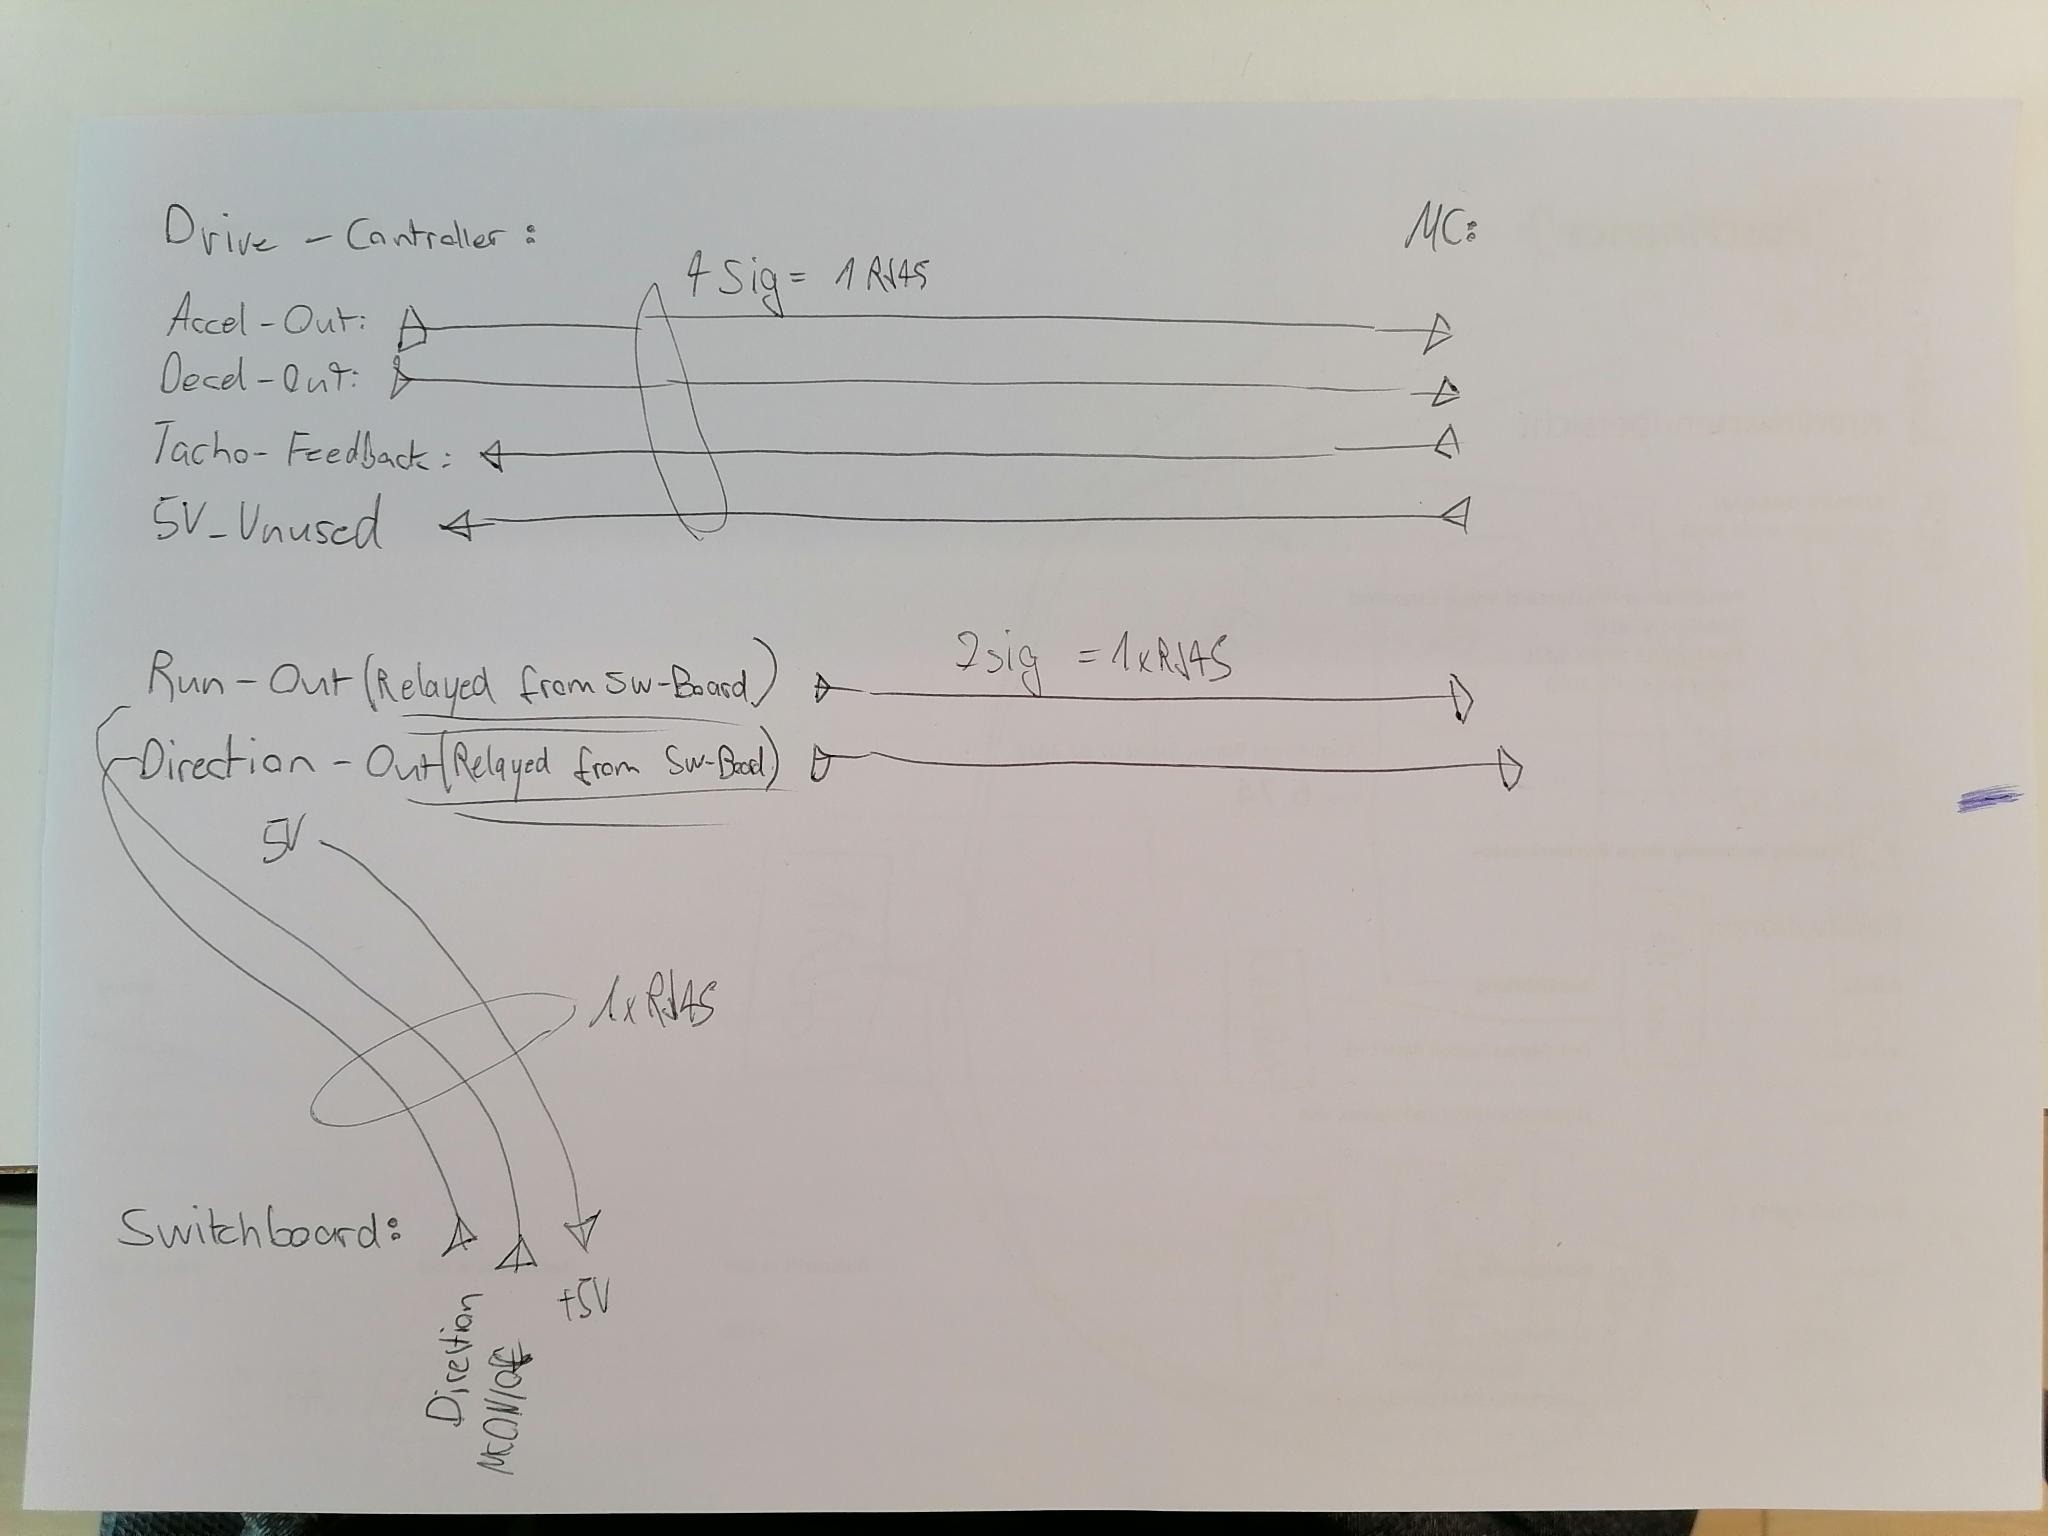 Drive - Controller:
MC:
4 Sig = 1 RJ45
Accel - Out:
Decel - Out:
Tacho - Feedback:
5V_Unused
2sig = 1xRJ45
Run - Out (Relayed from SW-Board)
Direction - Out (Relayed from SW-Board)
5V
1xRJ45
Switchboard:
+5V
Direction